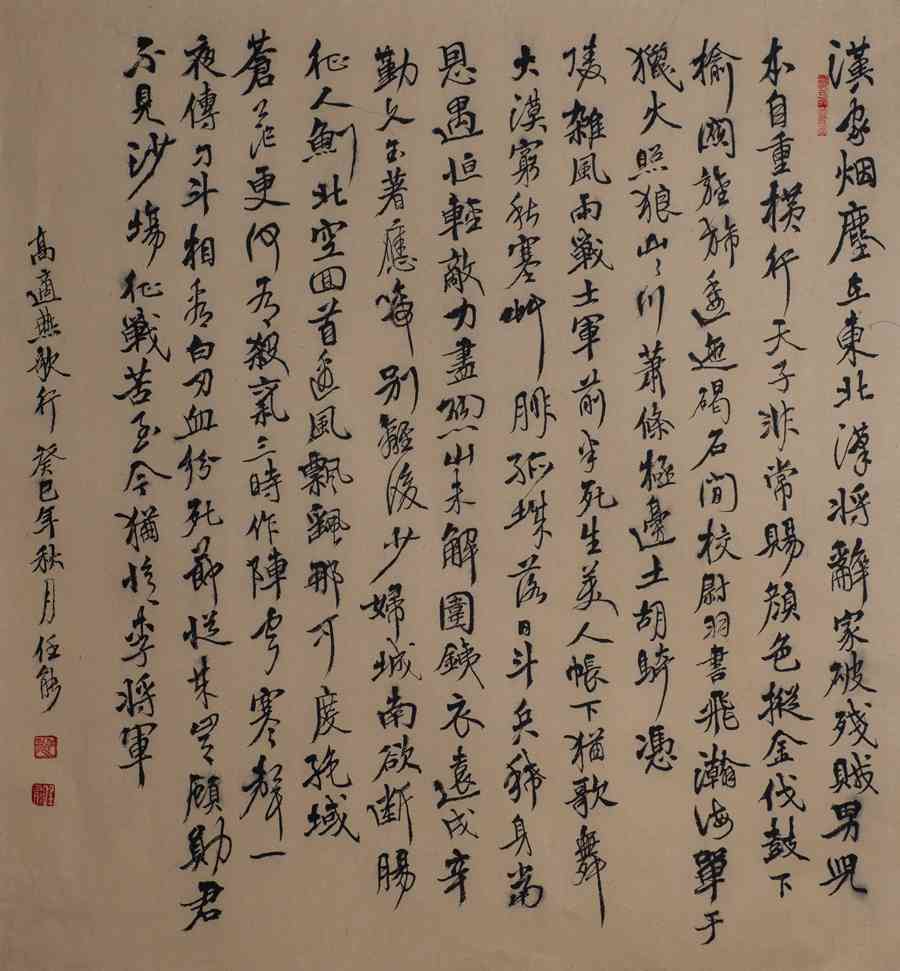 漢家烟塵在東北漢將辭家破殘賊男兒
本自重橫行天子非常賜顏色摐金伐鼓下
榆關旌旆逶迤碣石間校尉羽書飛瀚海單于
獵火照狼山〻川蕭條極邊土胡騎憑
陵雜風雨戰士軍前半死生美人帳下猶歌舞
大漠窮秋塞艸腓孤城落日斗兵稀身當
恩遇恒輕敵力盡關山未解圍鐵衣遠戍辛
勤久玉著應啼別離後少婦城南欲断腸
征人薊北空回首邊風飄飄那可度絕域
蒼茫更何有殺氣三時作陣雲寒聲一
夜傳刁斗相看白刃血紛死節從來豈顧勛君
不見沙場征戰苦至今猶憶李將軍
高適燕歌行 癸巳年秋月 任能